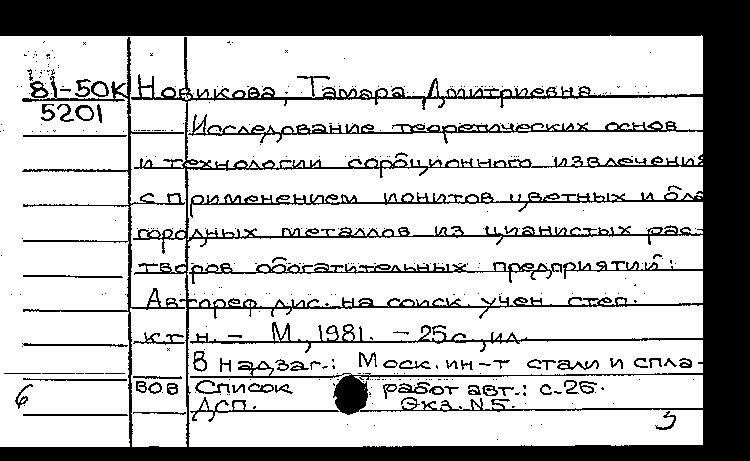 81-50К Новикова, Тамара Дмитриевна
5201
Исследование теоретических основ
и технологии сорбционного извлечения
с применением ионитов цветных и бла
городных металлов из цианистых рас-
творов обогатительных предприятий:
Автореф. дис. на соиск. учен. степ.
к.т.н. - М., 1981. - 25с., ил.
В надзаг.: Моск. ин-т стали и спла-
вов. Список работ авт.: с. 25.
6 ДСП. Экз. N5.